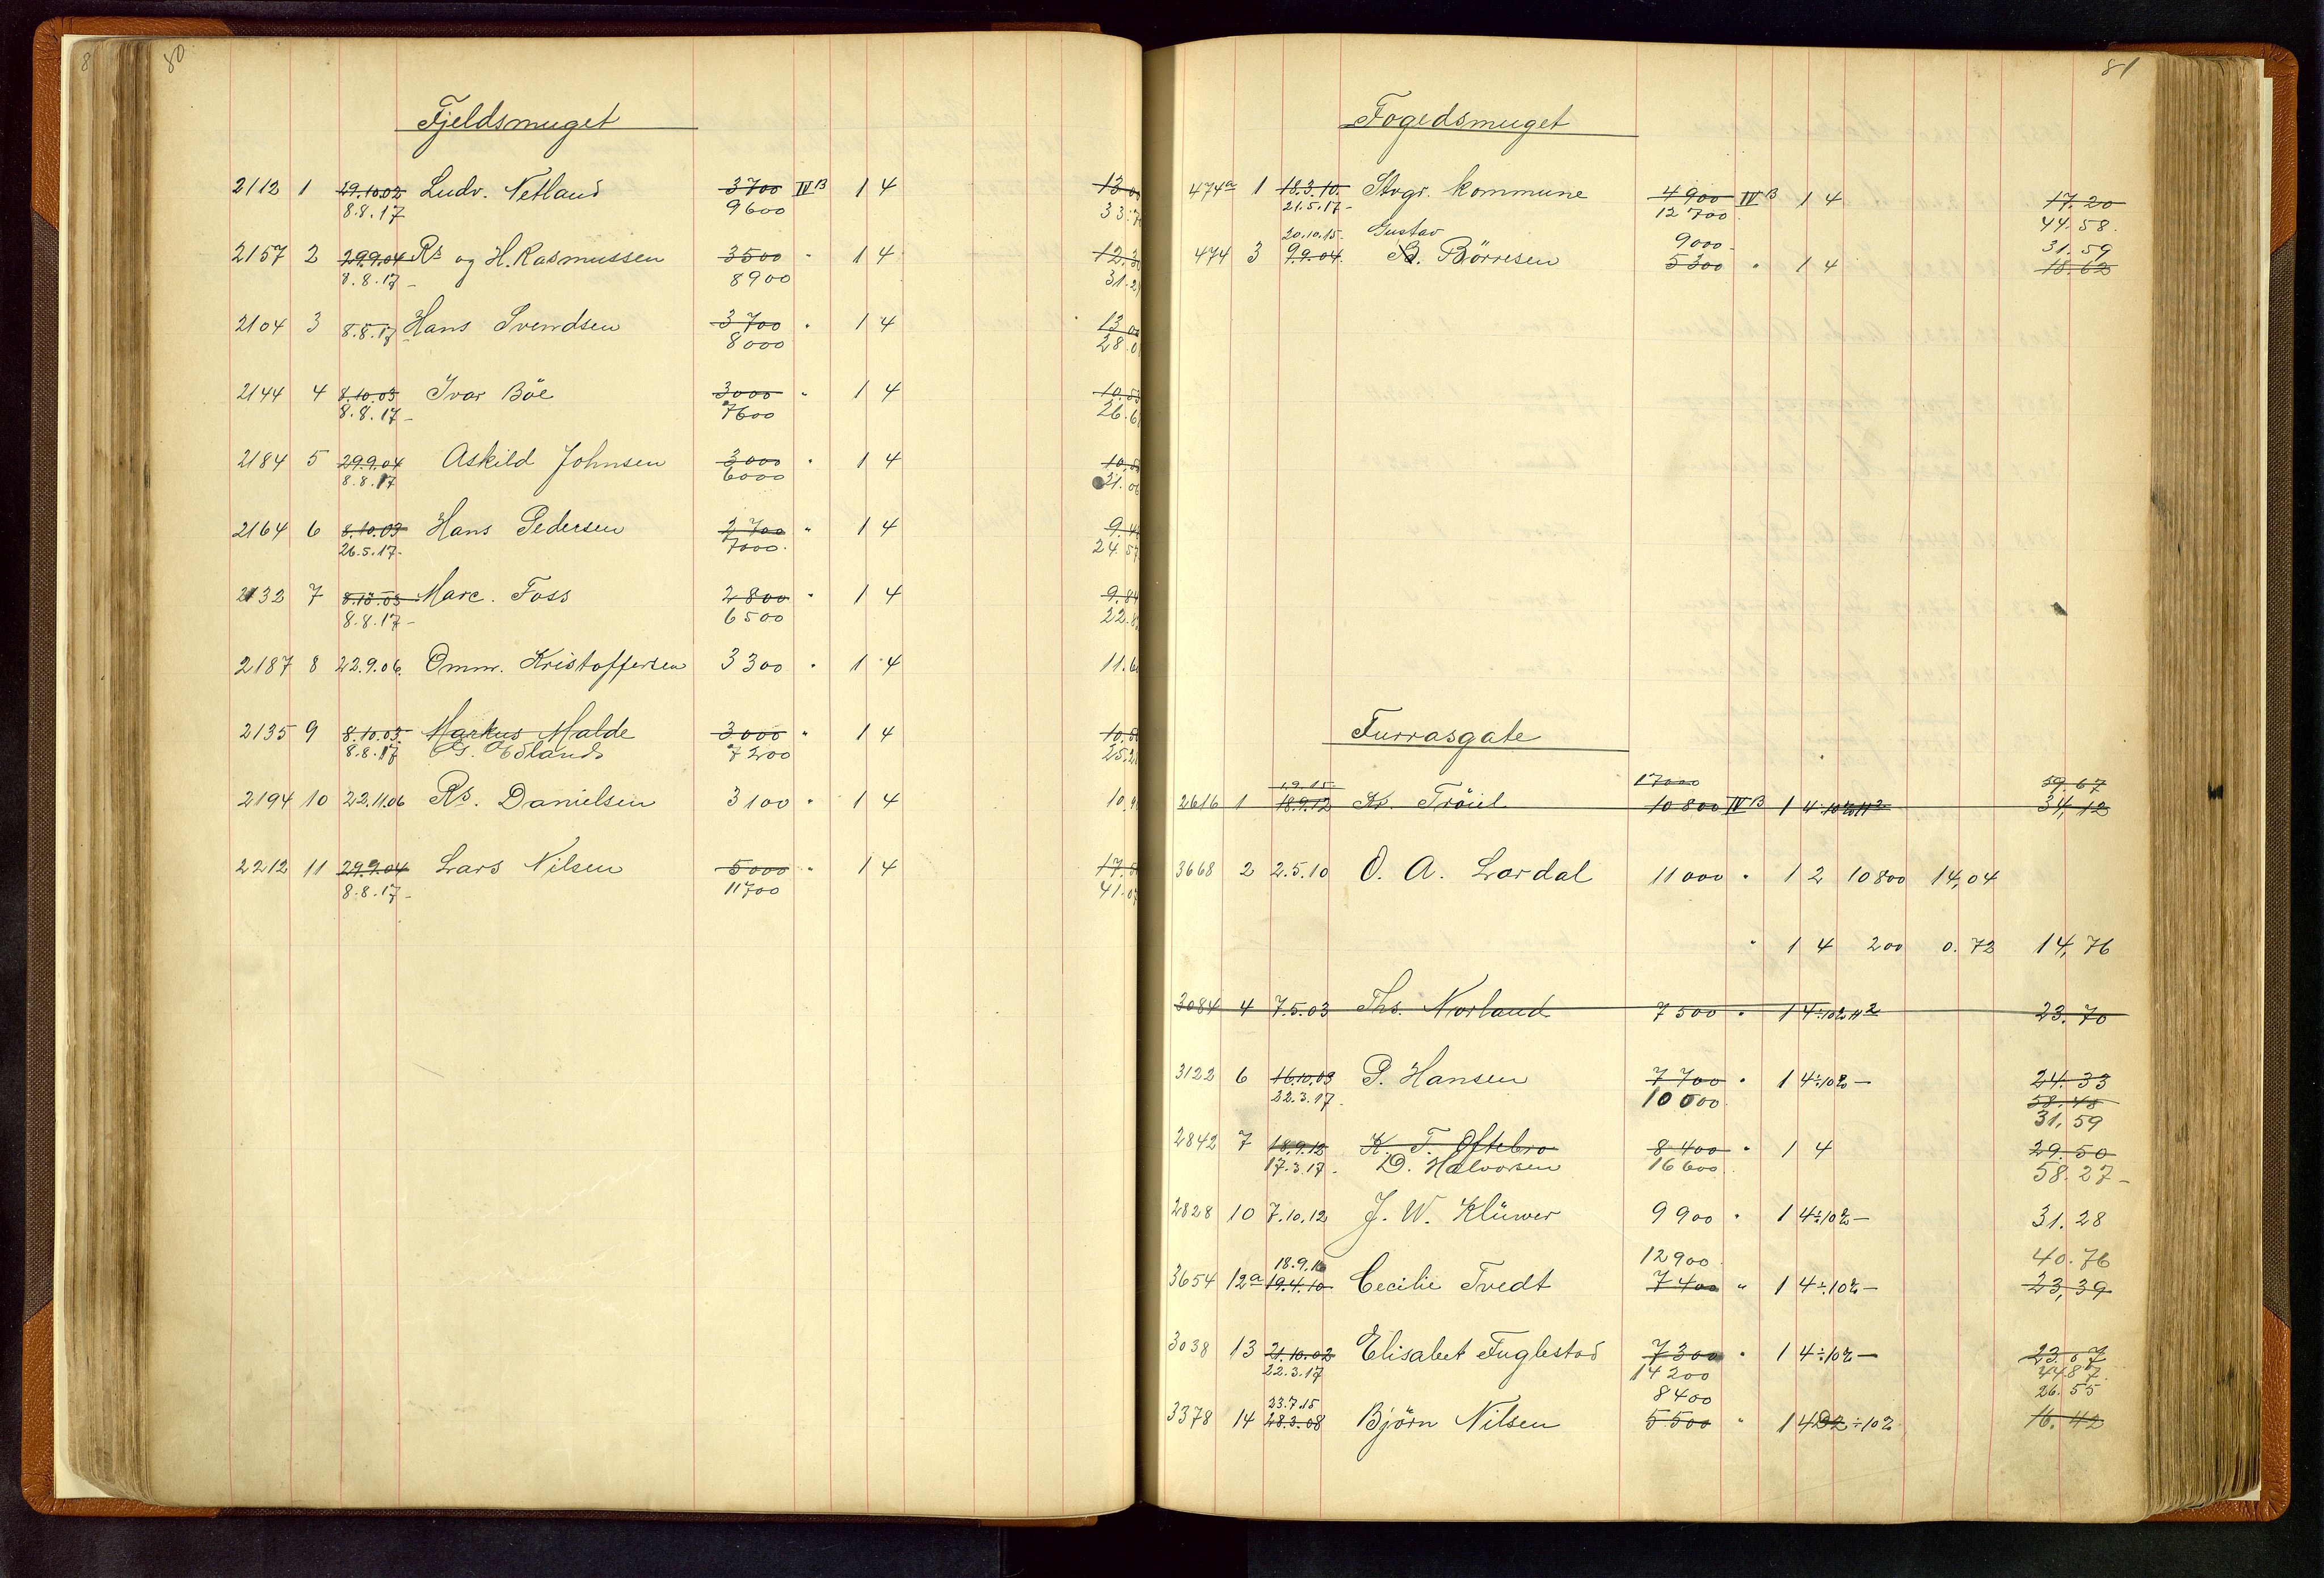 80
Fjeldsmuget
2112 1 29.10.02 Ludv. Netland 3700 IV B 1 4 13.00
8.8.17 9600 33.7
2157 2 29.9.04 Rs og H. Rasmussen 3500 " 1 4 12.3
8.8.17 - 8900 31.2
2104 3 8.8.17 - Hans Svendsen 3700 " 1 4 13.00
8000 28.0
2144 4 8.10.03 Ivar Böe 3000 " 1 4 10.53
8.8.17 - 7600 26.6
2184 5 29.9.04 Askild Johnsen 3000 " 1 4 10.5
8.8.17 6000 21.06
2164 6 8.10.03 Hans Pedersen 2700 " 1 4 9.4
26.5.17 - 7000 24.57
2132 7 8.10.03 Marc. Foss 2800 " 1 4 9.84
8.8.17 - 6500 22.8
2187 8 22.9.06. Omm. Kristoffersen 3300 " 1 4 11.6
2135 9 8.10.03 Markus Malde 3000 " 1 4 10.5
8.8.17 7200 25.2
2194 10 22.11.06 Rs. Danielsen 3100 " 1 4 10.9
2212 11 29.9.04 Lars Nilsen 5000 " 1 4 17.5
8.8.17 - 11700 41.07
81
Fogedsmuget
474a 1 18.3.10. Stvgr. kommune 4900 IV B 1 4 17.20
21.5.17 - 12700 44.58.
20.10.15. Gustav 9000 31.59
474 3 9.9.04. B. Börresen 5300 " 1 4 18.62
Furrasgate
1.9.15 17000 59.67
2616 1 18.9.12 Kr. Tröiel 10800 IV B 1 4 ÷ 10% 34,12
3668 2 2.5.10 O. A. Lordal 11000 " 1 2 10800 14,04
" 1 4 200 0.72 14,76
3084 4 7.5.03 Ths. Norland 7500 " 1 4 ÷ 10% 23.70
3122 6 16.10.03 P. Hansen 7700 " 1 4 ÷ 10% - 24.33
22.3.17. 10000 58.45
31,59
2842 7 18.9.12 K. T. Oftebro 8400 " 1 4 29.50
17.3.17. D. Halvorsen 16600 58.27 -
2828 10 7.10.12 J. W. Klüwer 9900 " 1 4 ÷ 10% - 31.28
18.9.16 12900 40.76
3654 12a 19.4.10. Cecilie Tvedt 7400 " 1 4 ÷ 10% - 23,39
3038 13 21.10.02 Elisabet Fuglestad 7300 " 1 4 ÷ 10% - 23.07
22.3.17 14200 44.87.
23.7.15 8400 26.55
3378 14 28.3.08 Björn Nilsen 5500 " 1 4 ÷ 10% 16.42